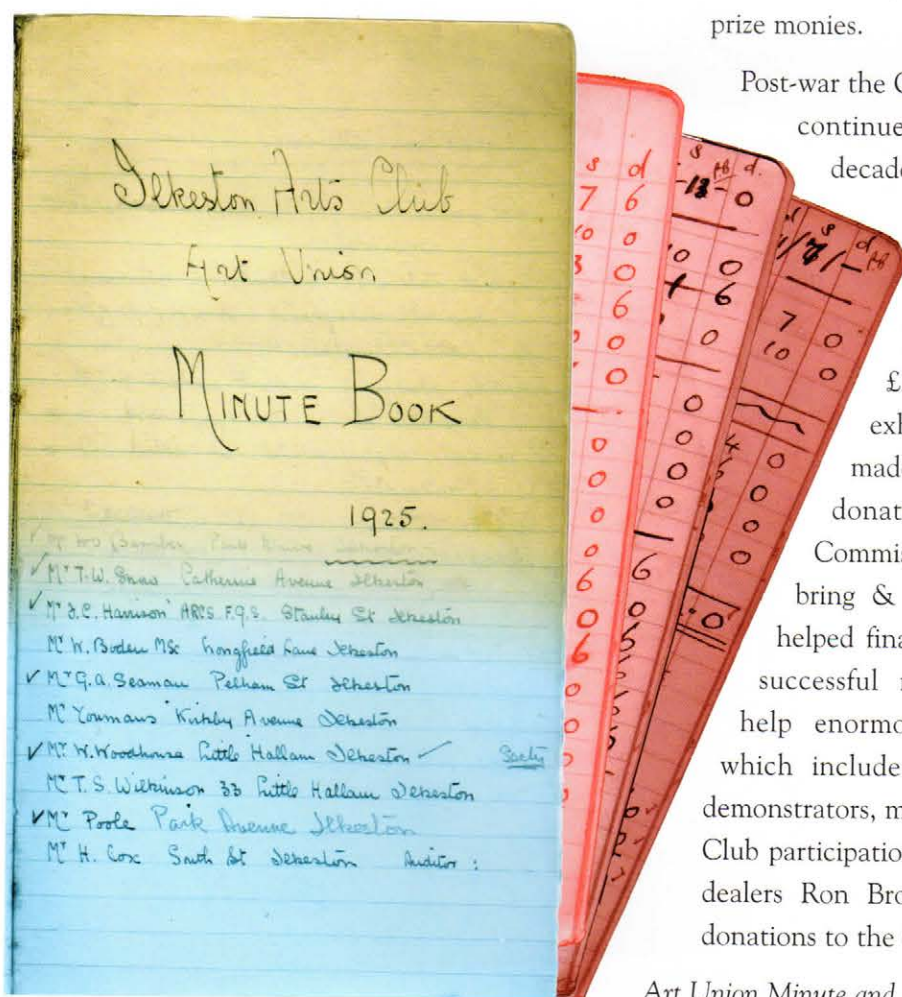 Ilkeston Arts Club
Art Union
MINUTE BOOK
1925.
Park Ilkeston
✓ Mr T.W. Shaw Catherine Avenue Ilkeston
✓ Mr J.C. Harrison ARCS. F.G.S. Stanley St Ilkeston
Mr W. Boden MSc Longfield Lane Ilkeston
✓ Mr G.A. Seaman Pelham St Ilkeston
Mr Youmans Kirkby Avenue Ilkeston
✓ Mr W. Woodhouse Little Hallam Ilkeston ✓ Secty
Mr T.S. Wilkinson 33 Little Hallam Ilkeston
✓ Mr Poole Park Avenue Ilkeston
Mr H. Cox South St Ilkeston Auditor :
s d
7 6
10 0
3 0
6
0 0
0
0
0
0
0
6
0
6
0
0
s d.
-13-0
10 0
6
0
0
0
0
0
6
s d
7 0
10 0
0
0
0
0
:0
prize monies.
Post-war the C
continue
decade
£
exh
made
donat
Commis
bring &
helped fina
successful
help enormo
which include
demonstrators, m
Club participatio
dealers Ron Bro
donations to the
Art Union Minute and